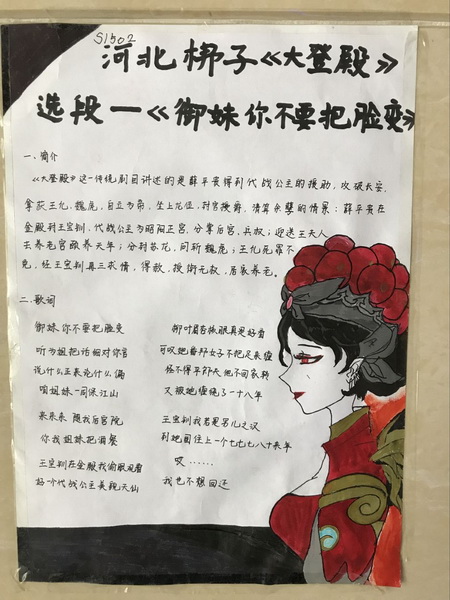 S1502
河北梆子《大登殿》
选段一《御妹你不要把脸变》
一、简介
《大登殿》这一传统剧目讲述的是薛平贵得到代战公主的援助，攻破长安，
拿获王允、魏虎，自立为帝，坐上龙位，封官授爵，清算余孽的情景：薛平贵在
金殿封王宝钏、代战公主为昭阳正宫，分掌后宫、兵权；迎进王夫人
去养老宫颐养天年；分封苏龙，问斩魏虎；王允死罪不
免，经王宝钏再三求情，得赦，授衔无权，居家养老。
二、歌词
御妹你不要把脸变
听为姐把话细对你言
说什么正来论什么偏
咱姐妹一同保江山
来来来 随我后宫院
你我姐妹把酒餐
王宝钏在金殿我偷眼观看
好一个代战公主美貌天仙
柳叶眉杏核眼真是好看
可叹她番邦女子不把足来缠
怪不得平郎夫他不回家转
又被她缠绕了一十八年
王宝钏我若是男儿之汉
到她国住上一个七七七八十来年
哎……
我也不想回还